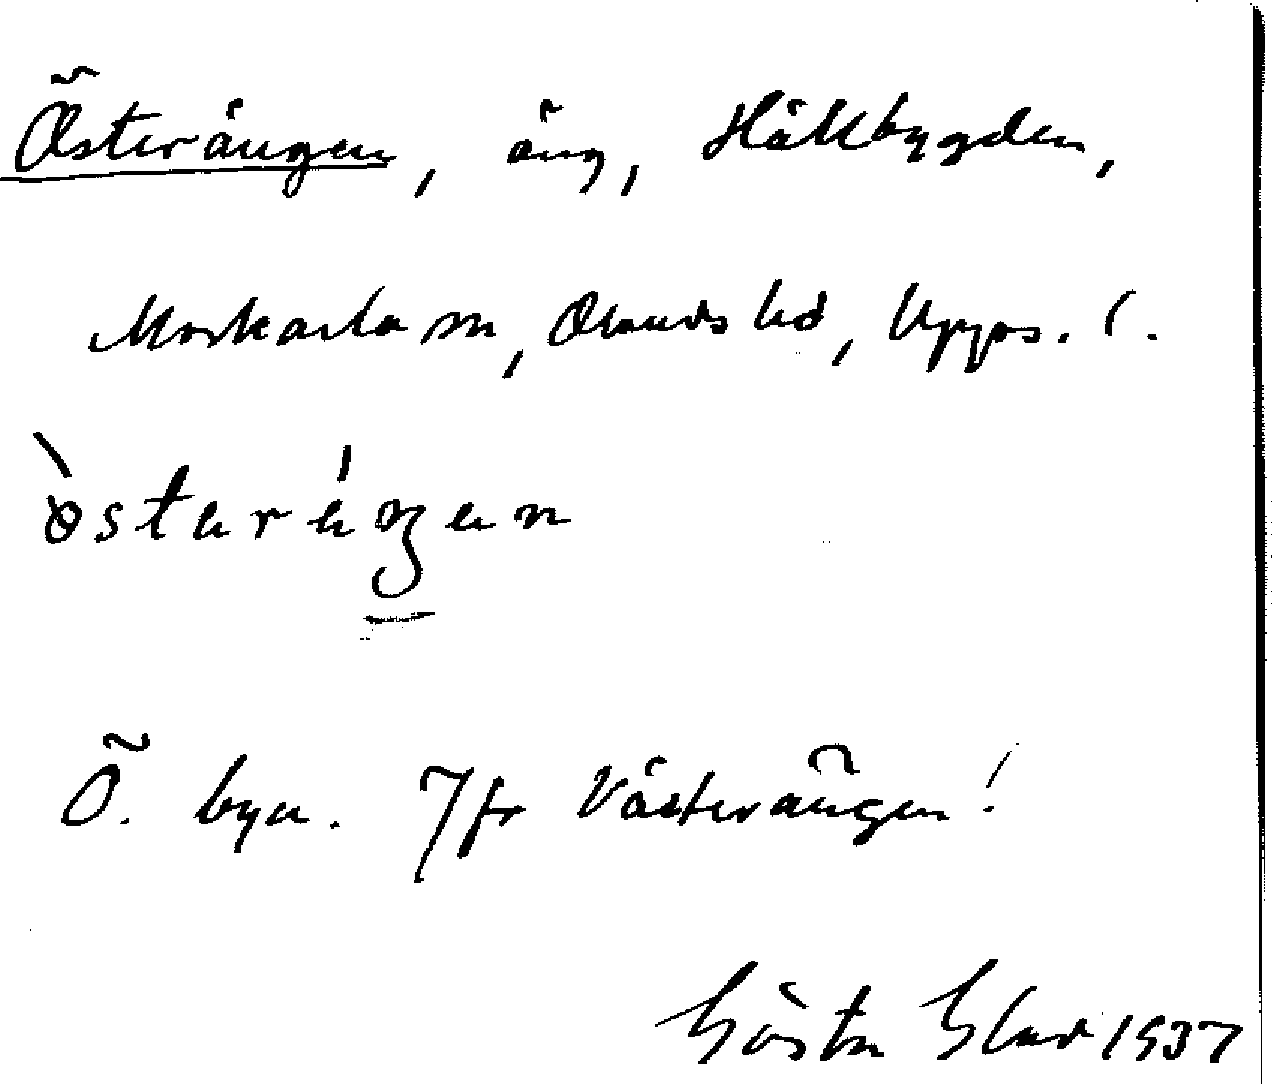 Österängen, äng, Håkbygden,
Morkarla sn, Olands hd, Upps. l.
òsterä́ŋen
Ö. byn. Jfr Västerängen!
Gösta Blad 1937